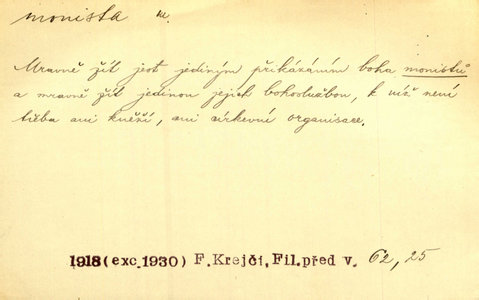 monista m.
Mravně žít jest jediným přikázáním boha monistů
a mravně žít jedinou jejich bohoslužbou, k níž není
třeba ani kněží, ani církevní organisace.
1918(exc.1930) F.Krejčí,Fil.před v. 62,25